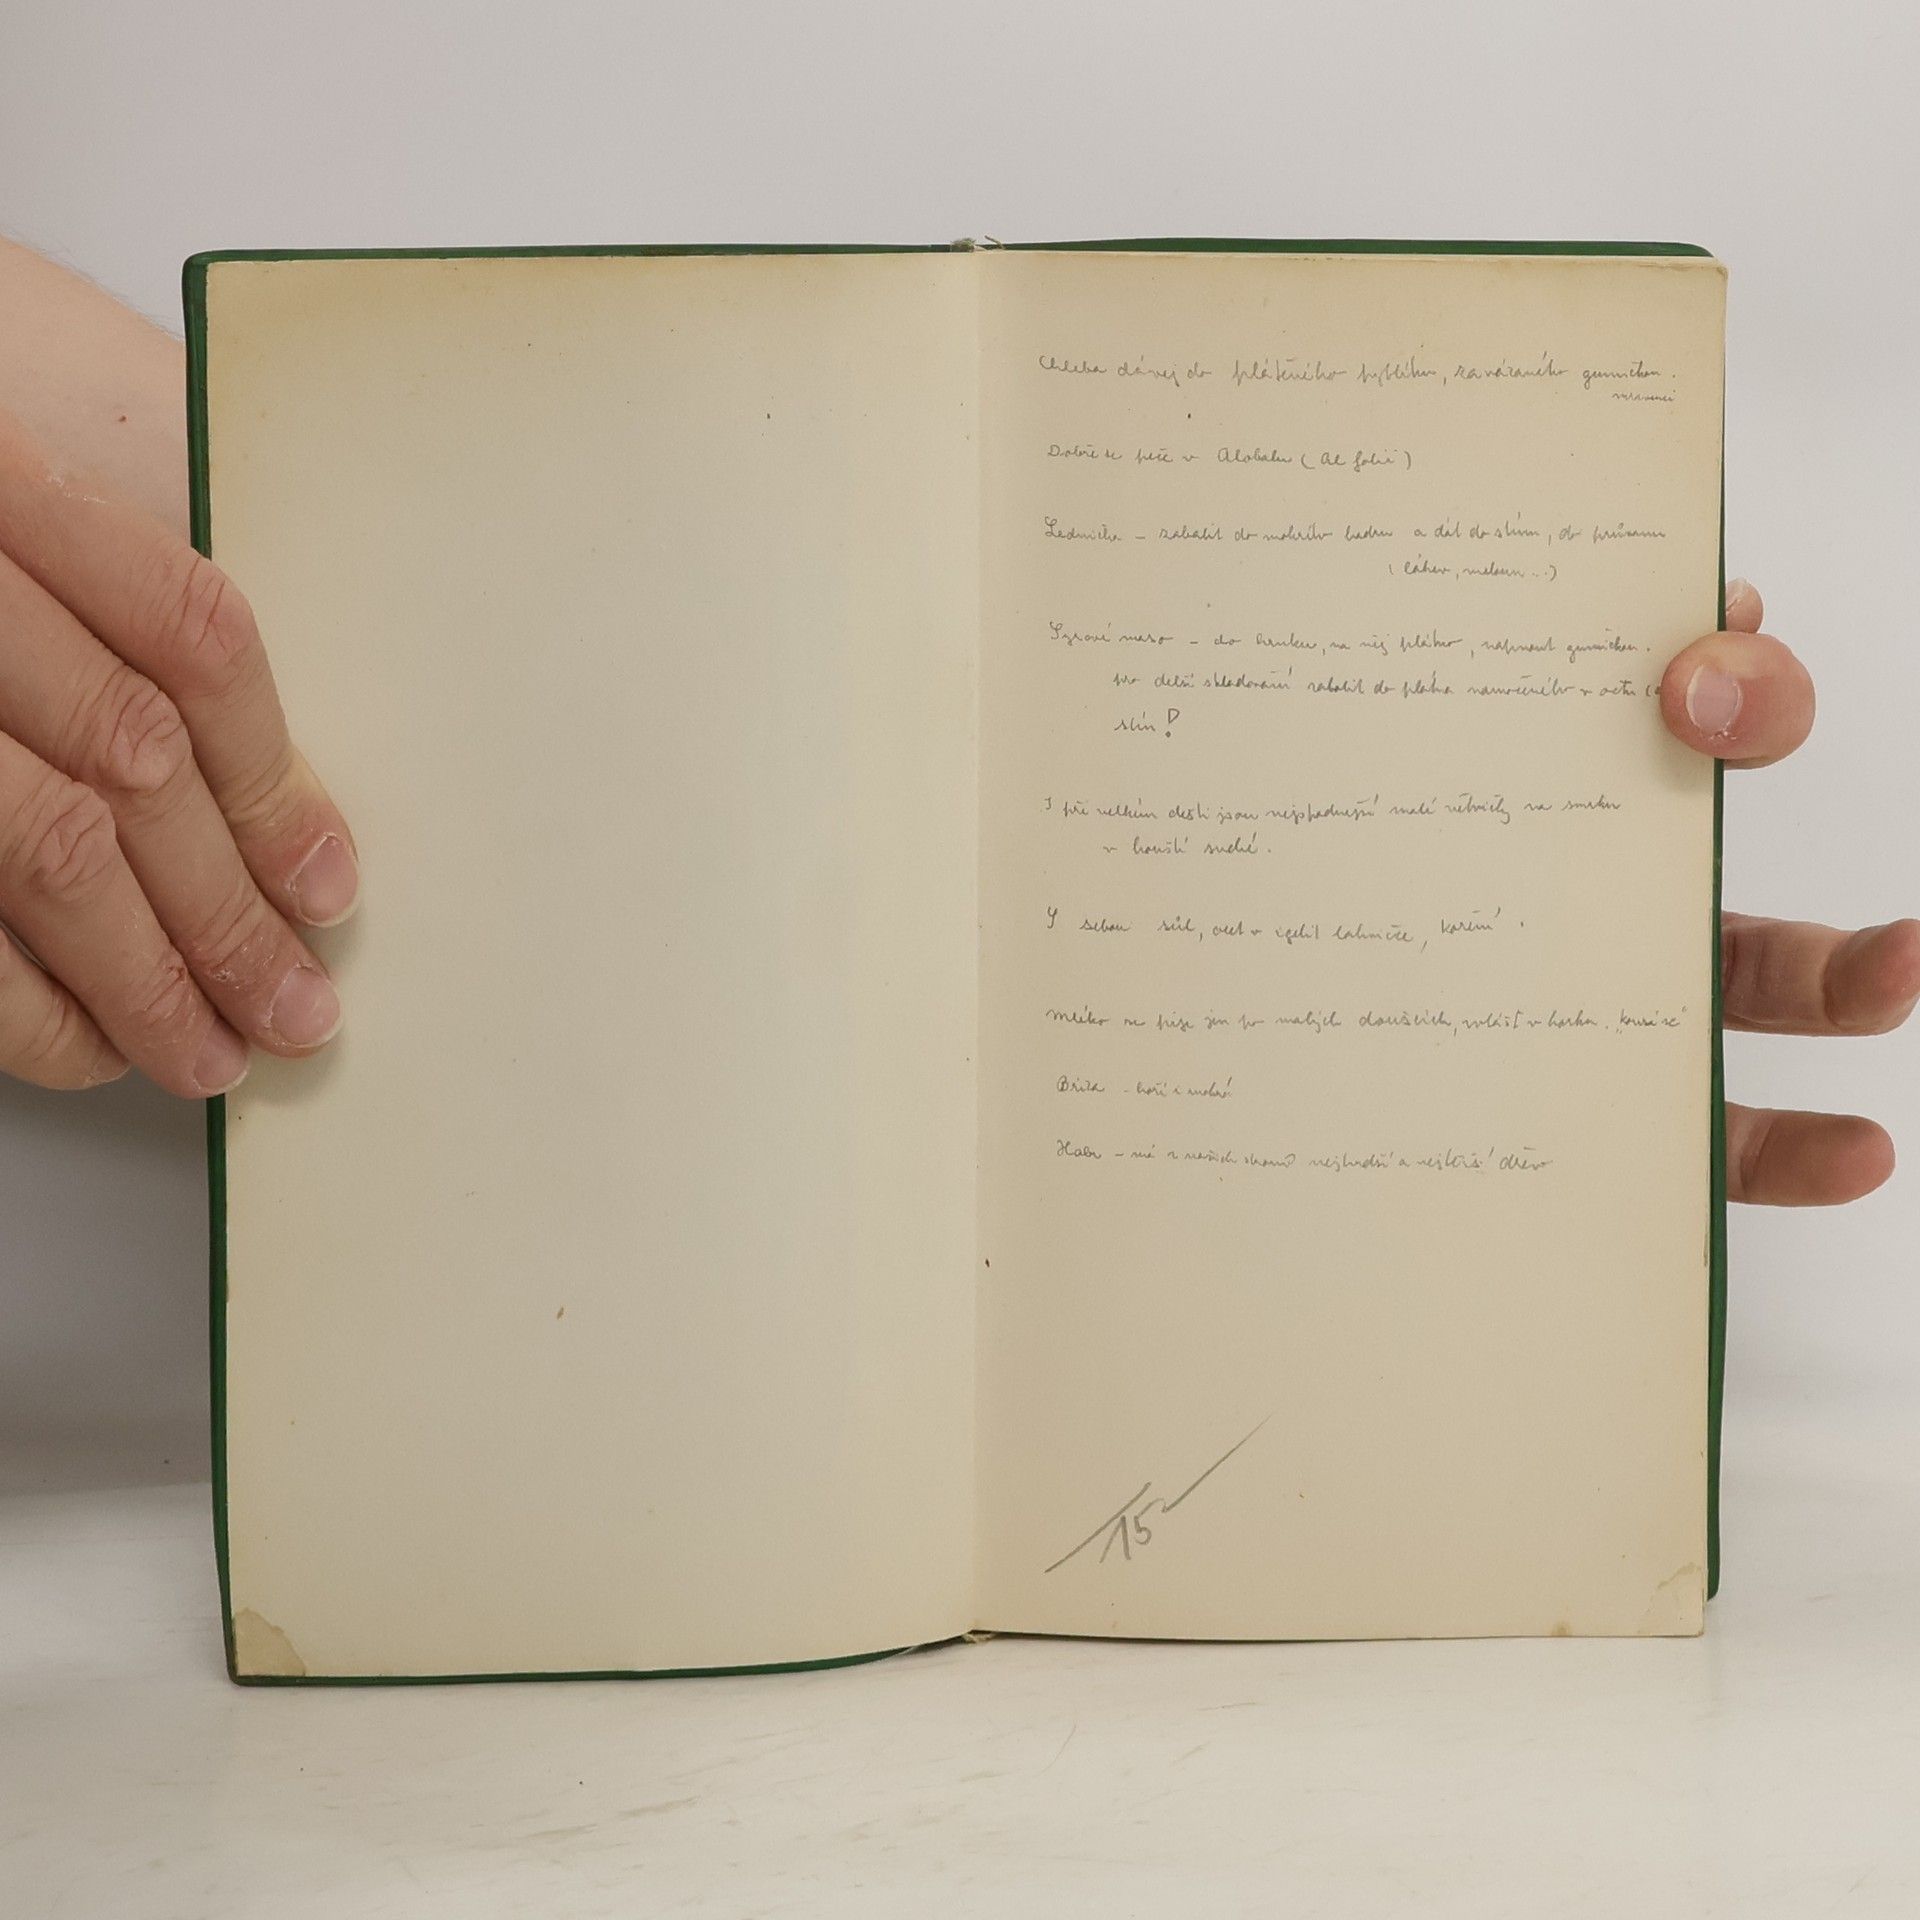 Chleba dávej do plátěného pytlíku, zavázaného gumičkou.
mravenci
Dobře se peče v Alobalu (Al folii)
Lednička - zabalit do mokrého hadru a dát do stínu, do průvanu
(láhev, meloun...)
Syrové maso - do hrnku, na něj plátno, napnout gumičkou.
pro delší skladování zabalit do plátna namočeného v octu (
stín!
I při velkém dešti jsou nejspodnější malé větvičky na smrku
v houští suché.
S sebou sůl, ocet v igelit lahvičce, koření.
Mléko se pije jen po malých doušcích, zvlášť v horku. „kouše se"
Bříza - hoří i mokrá
Habr - má z našich stromů nejtvrdší a nejtěžší dřevo
15